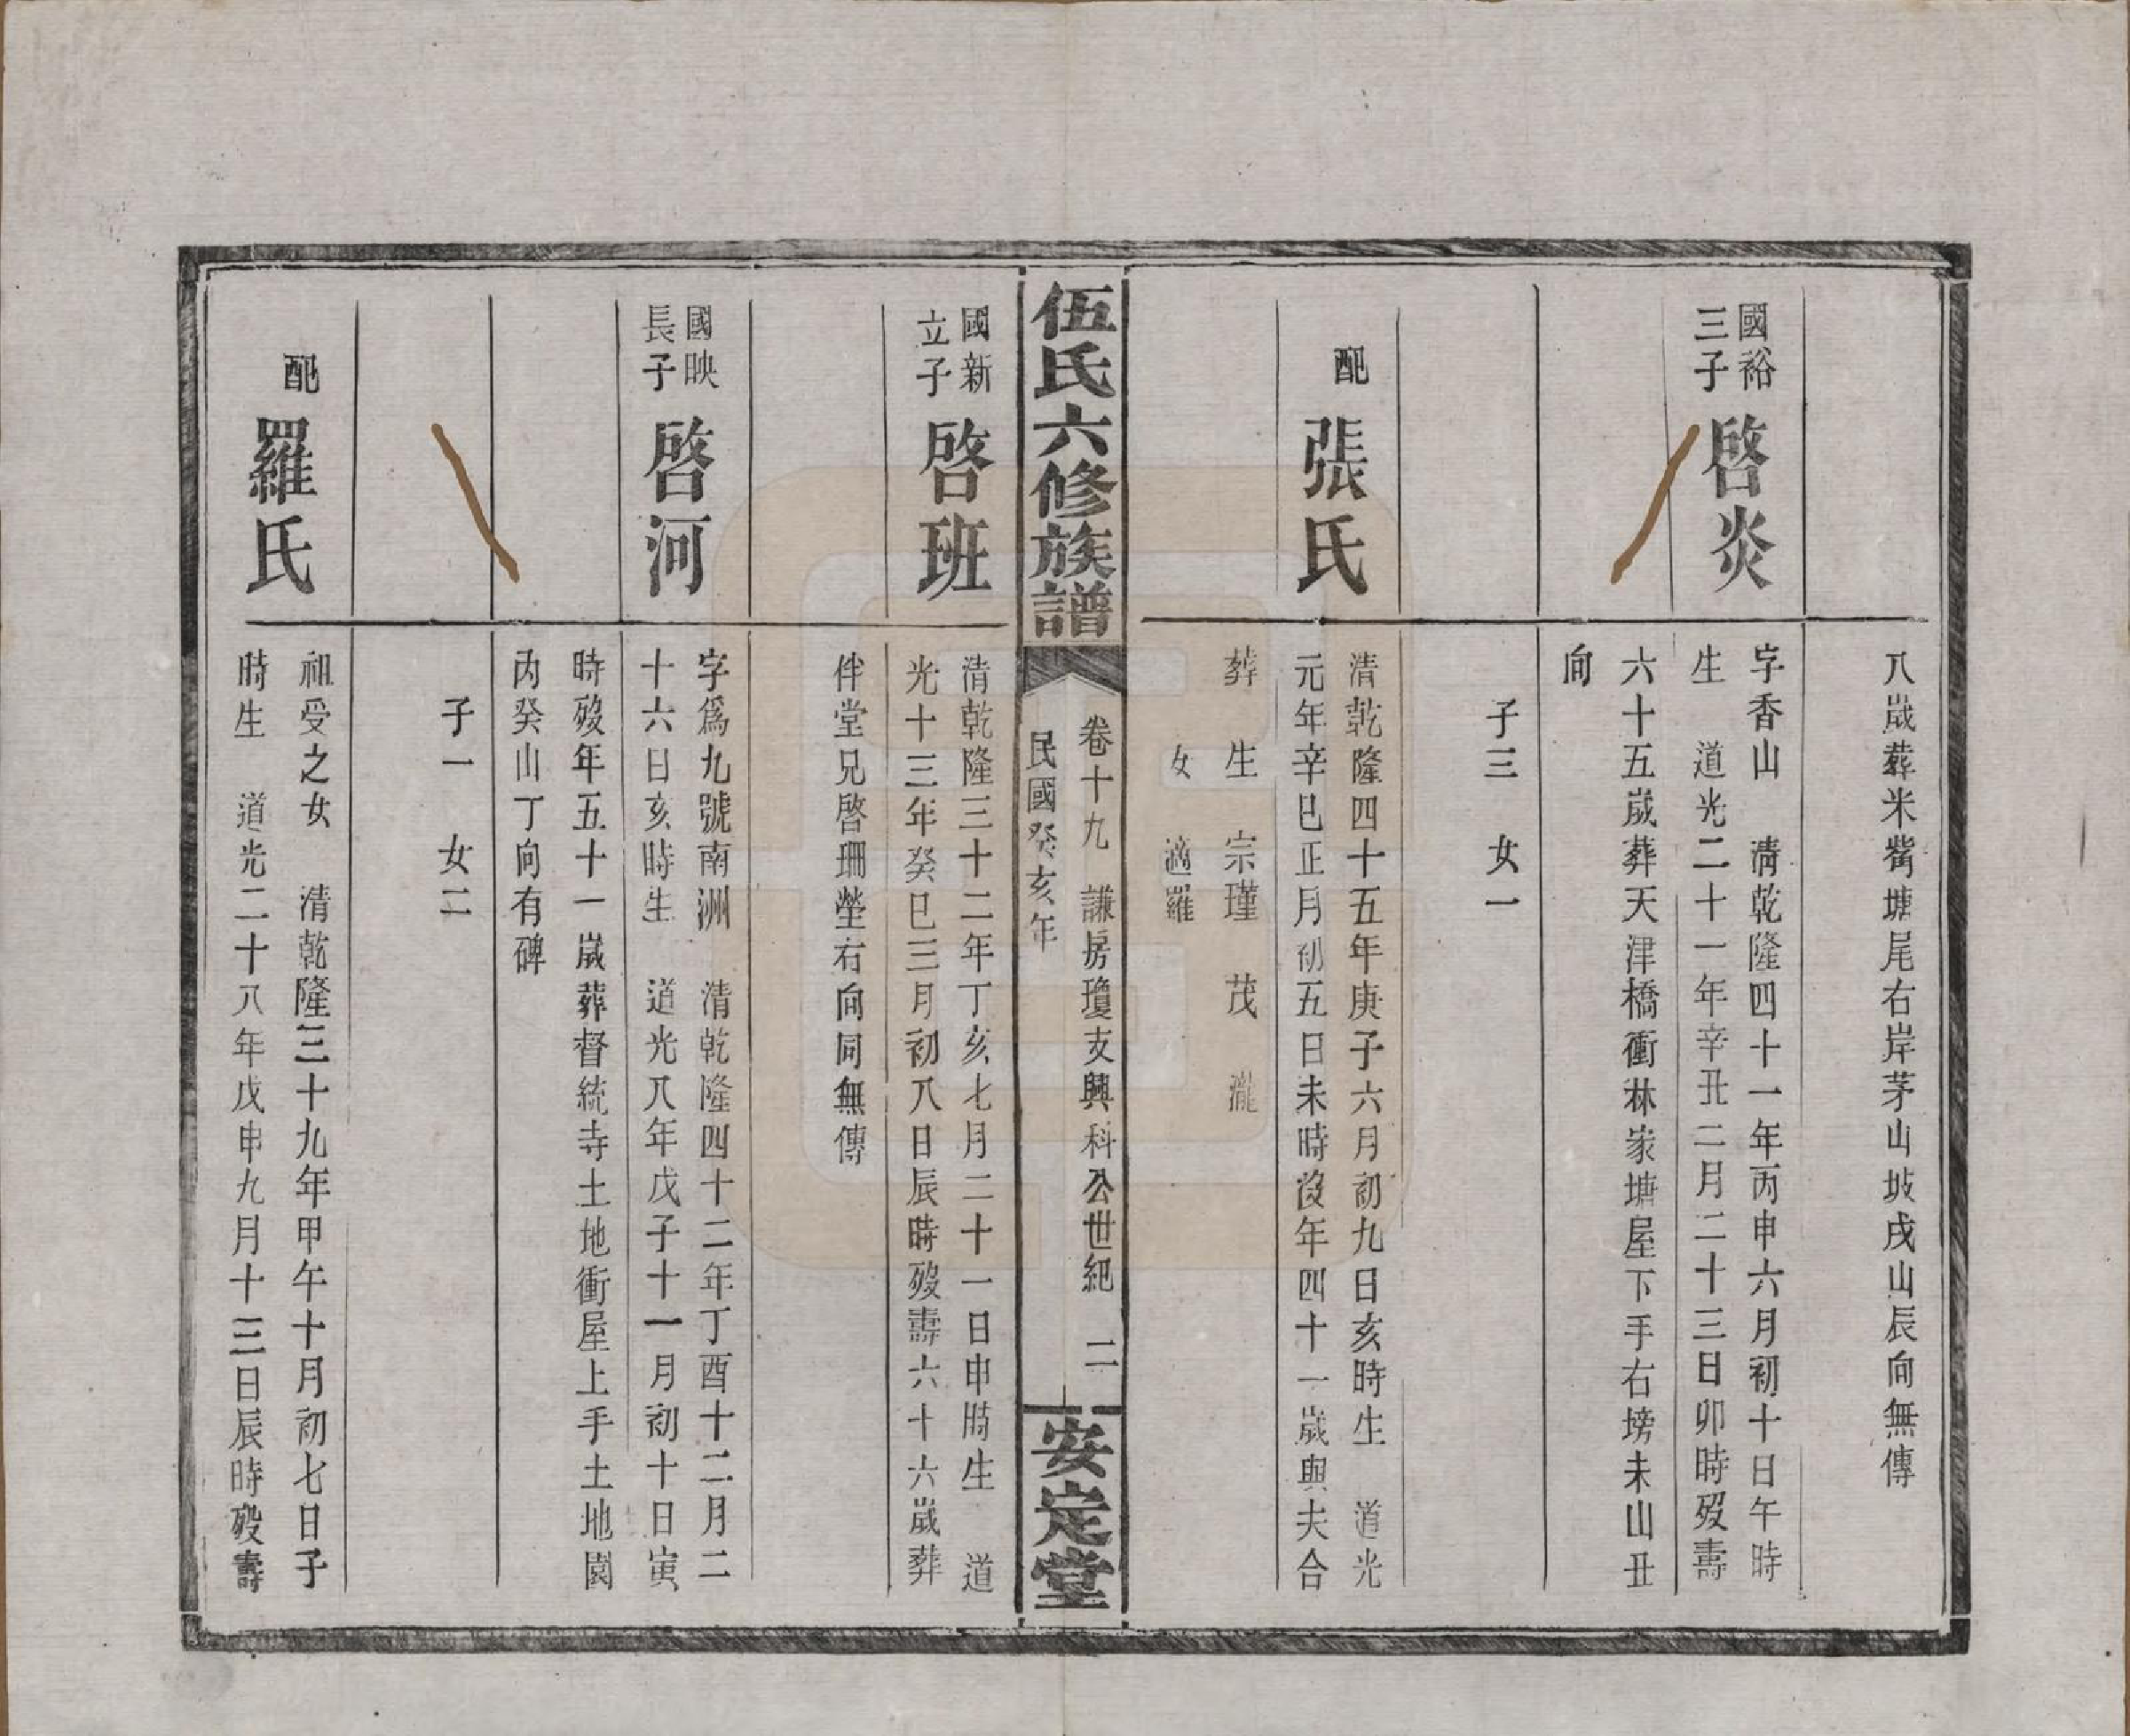 八歲葬米觜塘尾右岸茅山坡戌山辰向無傳
國裕
三子
啓炎
字香山 清乾隆四十一年丙申六月初十日午時
生 道光二十一年辛丑二月二十三日卯時歿壽
六十五歲葬天津橋衝林家塘屋下手右塝未山丑
向
子三 女一
配
張氏
清乾隆四十五年庚子六月初九日亥時生 道光
元年辛巳正月初五日未時沒年四十一歲與夫合
葬 生 宗瑾 茂 瀧
女 適羅
伍氏六修族譜
卷十九 謙房瓊支興科公世紀 二
民國癸亥年
安定堂
國新
立子
啓班
清乾隆三十二年丁亥七月二十一日申時生 道
光十三年癸巳三月初八日辰時歿壽六十六歲葬
伴堂兄啓珊塋右向同無傳
國映
長子
啓河
字爲九號南洲 清乾隆四十二年丁酉十二月二
十六日亥時生 道光八年戊子十一月初十日寅
時歿年五十一歲葬督統寺土地衝屋上手土地園
內癸山丁向有碑
子一 女二
配
羅氏
祖受之女 清乾隆三十九年甲午十月初七日子
時生 道光二十八年戊申九月十三日辰時歿壽